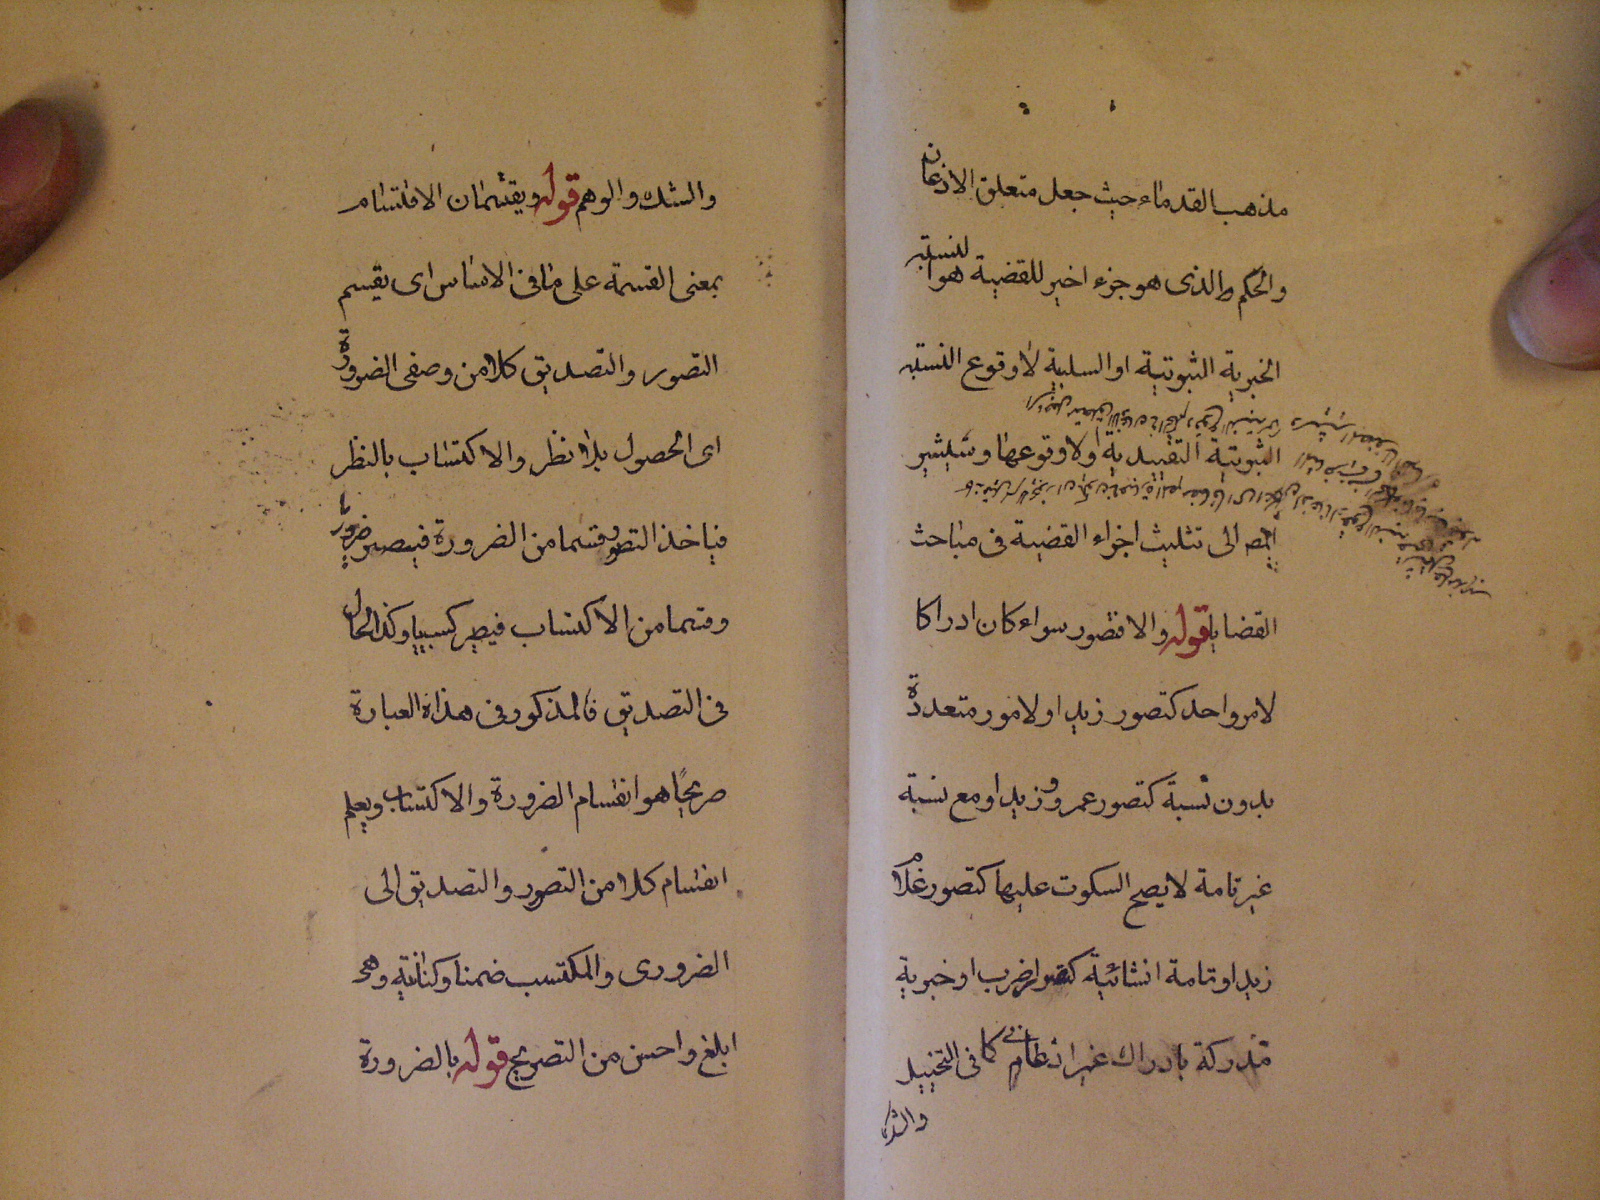 مذهب القدماء حيث جعل متعلق الاذعان
والحكم والذى هو جزء اخير للقضية هو النسبة
الخبرية الثبوتية او السلبية لا وقوع النسبة
الثبوتية التقييدية او لا وقوعها وسيشير
المص الى تثليث اجزاء القضية فى مباحث
القضايا قوله والا فتصور سواء كان ادراكا
لامر واحد كتصور زيد او لامور متعددة
بدون نسبة كتصور عمرو وزيد او مع نسبة
غير تامة لا يصح السكوت عليها كتصور غلام
زيد او تامة انشائية كتصور اضرب او خبرية
مدركة بادراك غير اذعانى كما فى التخييل
والشك
والشك والوهم قوله ويقتسمان الاقتسام
بمعنى القسمة على ما فى الاساس اى يقسم
التصور والتصديق كلا من وصفى الضرورة
اى الحصول بلا نظر والاكتساب بالنظر
فياخذ التصور قسما من الضرورة فيصير ضروريا
وقسما من الاكتساب فيصير كسبيا وكذا الحال
فى التصديق فالمذكور فى هذه العبارة
صريحًا هو انقسام الضرورة والاكتساب ويعلم
انقسام كلا من التصور والتصديق الى
الضرورى والمكتسب ضمنا وكناية وهى
ابلغ واحسن من التصريح قوله بالضرورة